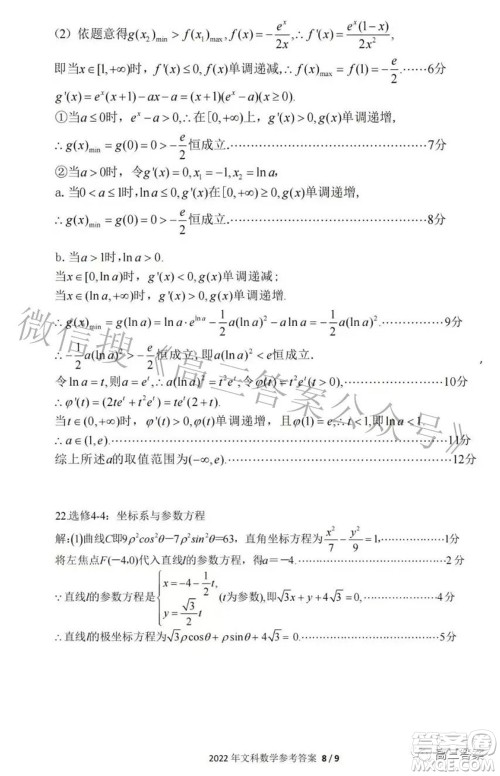 (2) 依题意得g(x₂)min > f(x₁)max, f(x)=-eˣ/2x, ∴f'(x)=eˣ(1-x)/2x²,
即当x∈[1,+∞)时, f'(x)≤0, f(x)单调递减, ∴f(x)max=f(1)=-e/2.……6分
g'(x)=eˣ(x+1)-ax-a=(x+1)(eˣ-a)(x≥0).
①当a≤0时, eˣ-a>0, ∴在[0,+∞)上, g'(x)>0, g(x)单调递增,
∴g(x)min=g(0)=0>-e/2恒成立.……7分
②当a>0时, 令g'(x)=0, x₁=-1, x₂=lna,
a.当0<a≤1时, lna≤0, g'(x)≥0在[0,+∞)上, g(x)单调递增,
∴g(x)min=g(0)=0>-e/2恒成立.……8分
b.当a>1时, lna>0.
当x∈[0,lna)时, g'(x)<0, g(x)单调递减;
当x∈(lna,+∞)时, g'(x)>0, g(x)单调递增.
∴g(x)min=g(lna)=lna·e^lna-1/2a(lna)²-alna=-1/2a(lna)².……9分
∴-1/2a(lna)²>-e/2恒成立, 即a(lna)²<e恒成立.
令lna=t, 则a=eᵗ, ∴a(lna)²=t²eᵗ, 令φ(t)=t²eᵗ(t>0),……10分
∴φ'(t)=(2teᵗ+t²eᵗ)=teᵗ(2+t).
当t∈(0,+∞)时, φ'(t)>0, φ(t)单调递增, 且φ(1)=e, ∴t<1, 即lna<1
∴a∈(1,e).……11分
综上所述a的取值范围为(-∞,e).……12分
22.选修4-4:坐标系与参数方程
解:(1)曲线C即9ρ²cos²θ-7ρ²sin²θ=63, 直角坐标方程为x²/7-y²/9=1,……1分
将左焦点F(-4,0)代入直线l的参数方程, 得a=-4.……2分
∵直线l的参数方程是{x=-4-1/2t, y=√3/2t (t为参数), 即√3x+y+4√3=0,……4分
∴直线l的极坐标方程为√3ρcosθ+ρsinθ+4√3=0.……5分
微信搜《高三答案公众号》
2022 年文科数学参考答案 8 / 9
高三答案
答案圈
MXQE.COM